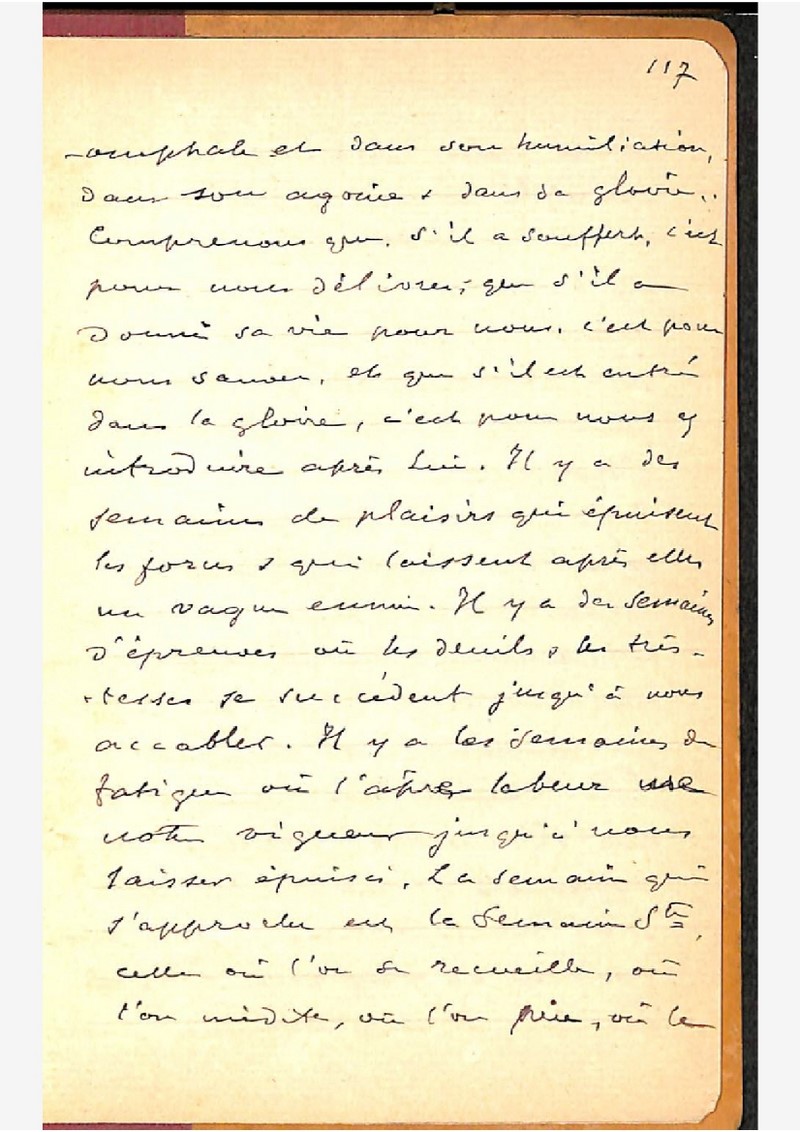 117
-omphale et dans son humiliation,
dans son agonie & dans sa gloire.
Comprenons que, s'il a souffert, c'est
pour nous délivrer; que s'il a
donné sa vie pour nous, c'est pour
nous sauver, et que s'il est entré
dans la gloire, c'est pour nous y
introduire après Lui. Il y a des
semaines de plaisirs qui épuisent
les forces & qui laissent après elles
un vague ennui. Il y a des semaines
d'épreuves où les deuils & les tris-
-tesses se succédent jusqu'à nous
accabler. Il y a les semaines de
fatigue où l'âpre labeur use
notre vigueur jusqu'à nous
laisser épuisés. La semaine qui
s'approche est la Semaine Ste,
celle où l'on se recueille, où
l'on médite, où l'on prie, où le